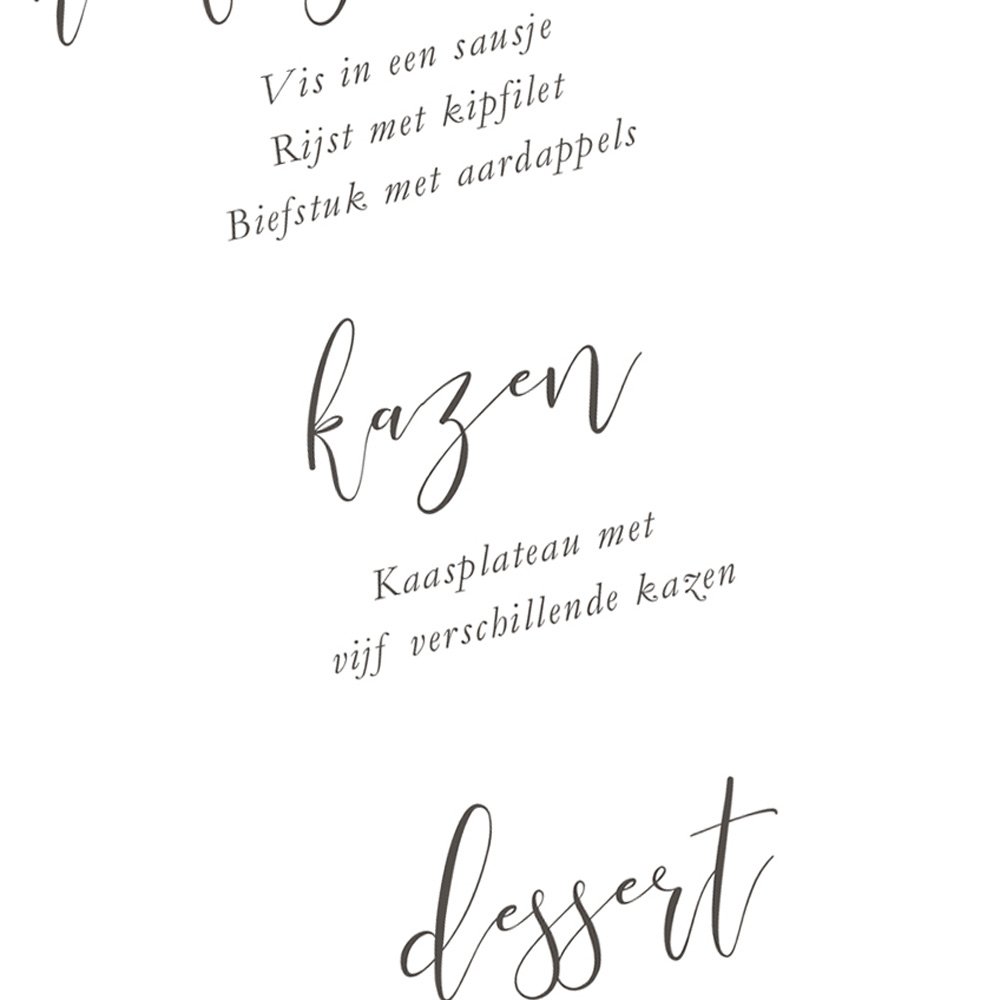 Vis in een sausje
Rijst met kipfilet
Biefstuk met aardappels
kazen
Kaasplateau met
vijf verschillende kazen
dessert